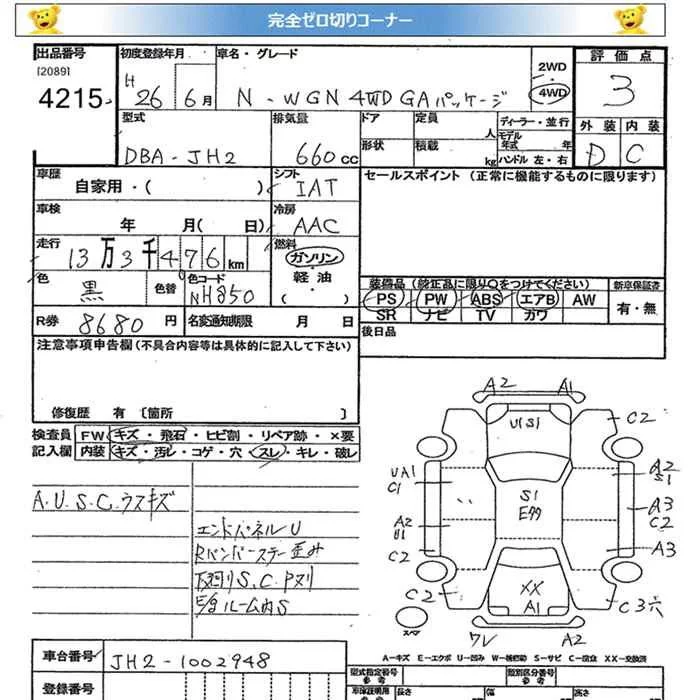 完全ゼロ切りコーナー
出品番号 初度登録年月 車名・グレード 2WD・4WD 評価点
[2089]
4215 H 26 6月 N-WGN 4WD GAパッケージ 3
型式 排気量 ドア 定員 人 ディーラー・並行 外装 内装
DBA-JH2 660cc 形状 積載 kg モデル年式 年 ハンドル 左・右 D C
車歴 シフト セールスポイント (正常に機能するものに限ります)
自家用・( ) IAT
車検 冷房
年 月( 日) AAC
走行 燃料
13万3千476km ガソリン
色 色替 色コード 軽油
黒 NH850 ( )
装備品 (純正品に限り○をつけてください) 新車保証書
PS PW ABS エアB AW 有・無
SR ナビ TV カワ
R券 8680円 名変通知期限 月 日
後日品
注意事項申告欄(不具合内容等は具体的に記入して下さい)
修復歴 有 [箇所 ]
検査員 FW キズ・飛石・ヒビ割・リペア跡・×要
記入欄 内装 キズ・汚レ・コゲ・穴・スレ・キレ・破レ
A.U.S.C.ウスキズ
エンドパネルU
Rバンパーステー歪み
下廻りS.C.Pヌリ
E/gルーム内S
A2 A1
C2
U1S1
UA1
C1
A2
S1
S1
E99
A3
C2
A2
U1
A3
C2
C2
XX
A1
C3穴
スペア
ワレ A2
A-キズ E-エクボ U-凹み W-補修跡 S-サビ C-腐食 XX-交換済
車台番号 JH2-1002948
型式指定番号 類別区分番号
参考 参考
登録番号
車庫証明用 長さ 幅 高さ
参考